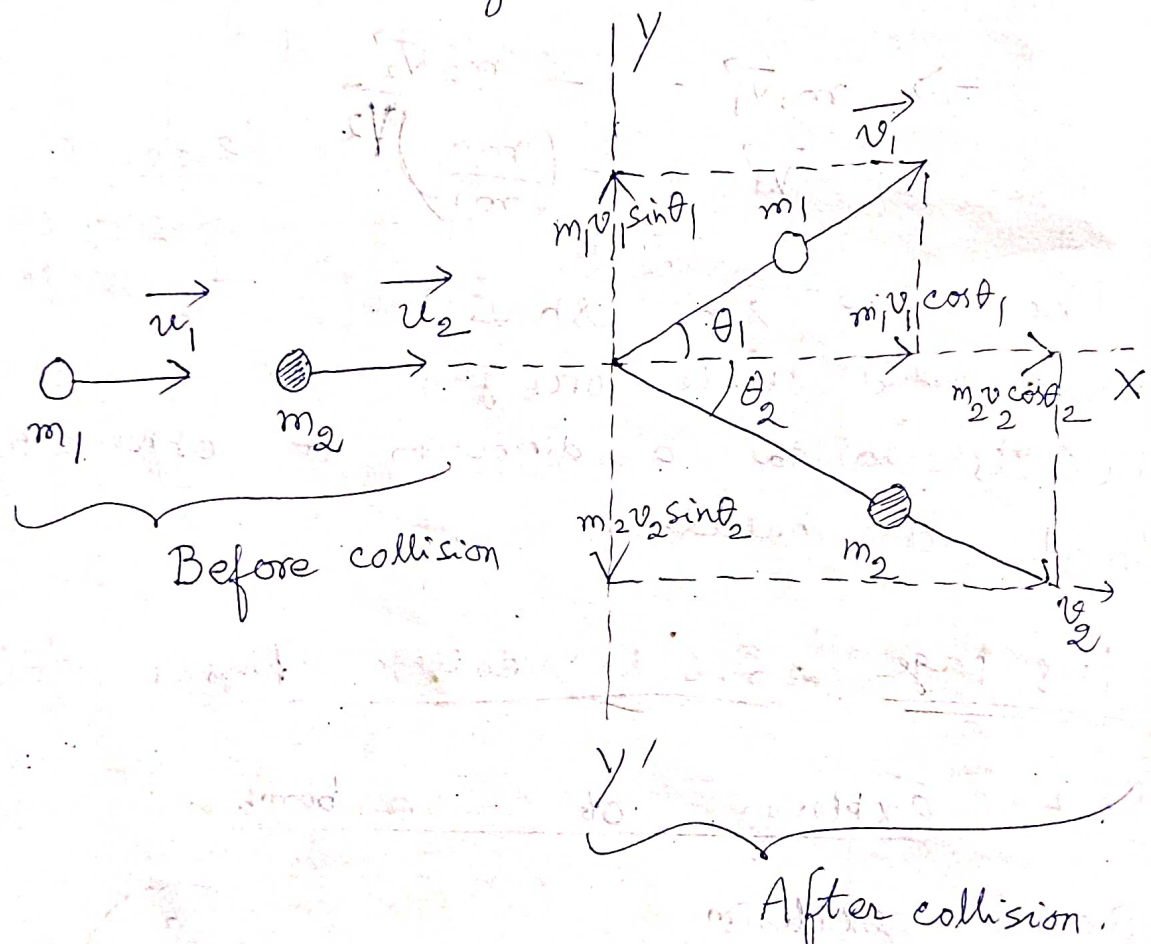 Y
v₁
m₁v₁sinθ₁
m₁
u₁
u₂
θ₁
m₁v₁cosθ₁
m₁
m₂
θ₂
m₂v₂cosθ₂
X
m₂v₂sinθ₂
m₂
v₂
Before collision
Y'
After collision.